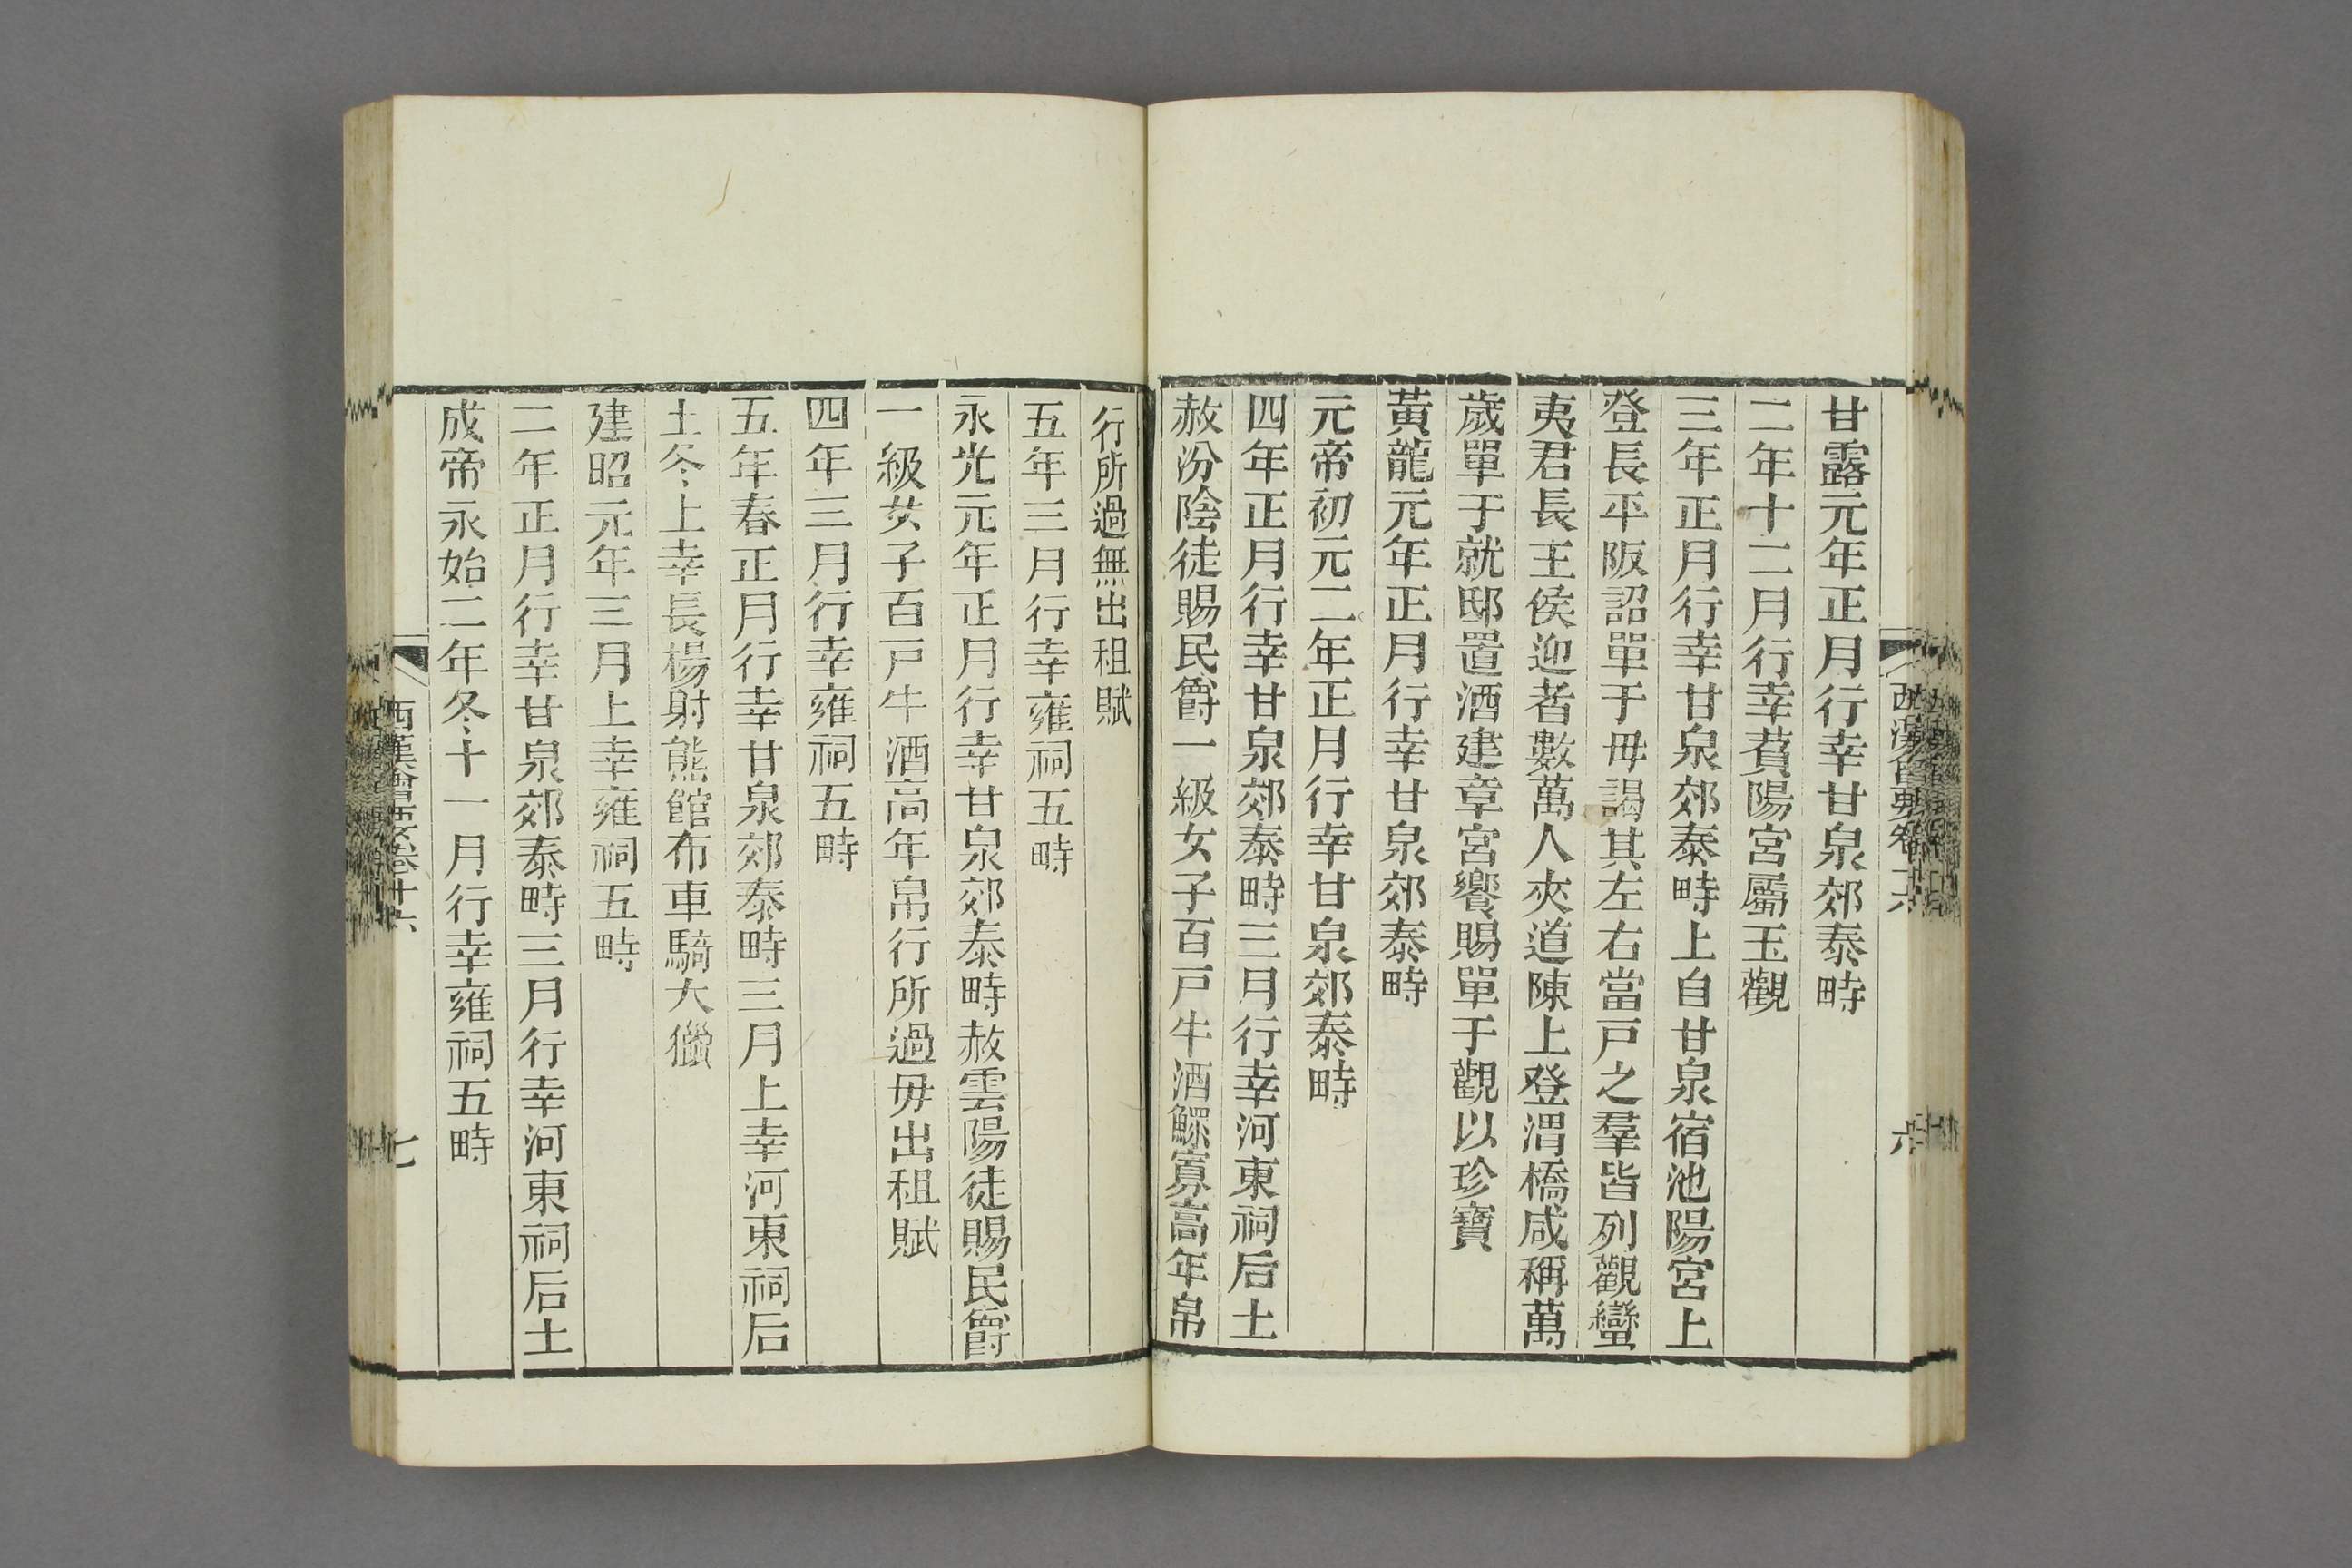 甘露元年正月行幸甘泉郊泰畤
二年十二月行幸萯陽宮屬玉觀
三年正月行幸甘泉郊泰畤上自甘泉宿池陽宮上
登長平阪詔單于毋謁其左右當戸之羣皆列觀蠻
夷君長王侯迎者數萬人夾道陳上登渭橋咸稱萬
歲單于就邸置酒建章宮饗賜單于觀以珍寶
黃龍元年正月行幸甘泉郊泰畤
元帝初元二年正月行幸甘泉郊泰畤
四年正月行幸甘泉郊泰畤三月行幸河東祠后土
赦汾陰徒賜民爵一級女子百戸牛酒鰥寡高年帛
行所過無出租賦
五年三月行幸雍祠五畤
永光元年正月行幸甘泉郊泰畤赦雲陽徒賜民爵
一級女子百戸牛酒高年帛行所過毋出租賦
四年三月行幸雍祠五畤
五年春正月行幸甘泉郊泰畤三月上幸河東祠后
土冬上幸長楊射熊館布車騎大獵
建昭元年三月上幸雍祠五畤
二年正月行幸甘泉郊泰畤三月行幸河東祠后土
成帝永始二年冬十一月行幸雍祠五畤
西漢會要卷十六
七